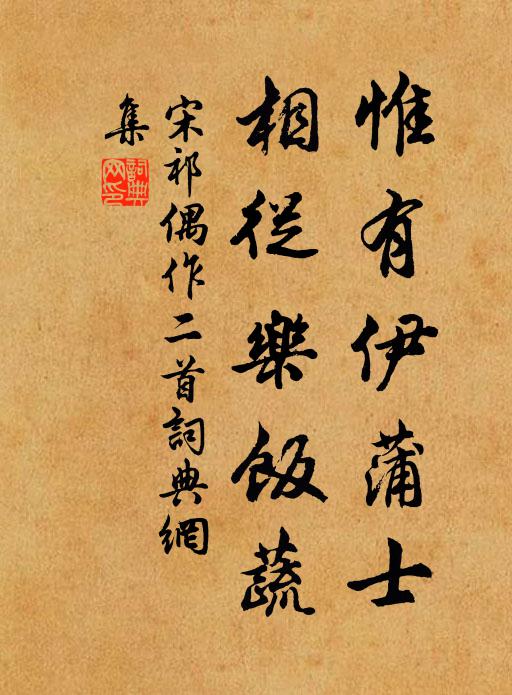 惟有伊蒲士
相從樂飯蔬
宋祁偶作二首詞典網
集
詞典
网印